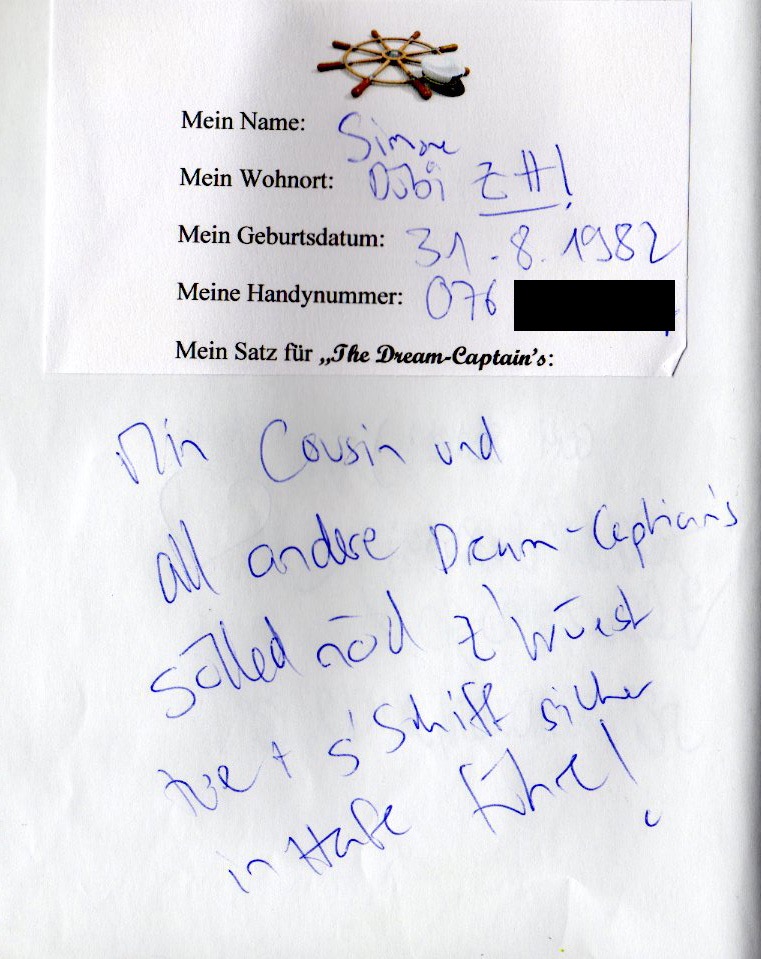 Mein Name: Simone
Mein Wohnort: Dübi ZH!
Mein Geburtsdatum: 31.8.1982
Meine Handynummer: 076
Mein Satz für „The Dream-Captain's:
Min Cousin und
all andere Dream-Captian's
sölled nöd z'wüest
tue + s'Schiff sicher
in Hafe führe!